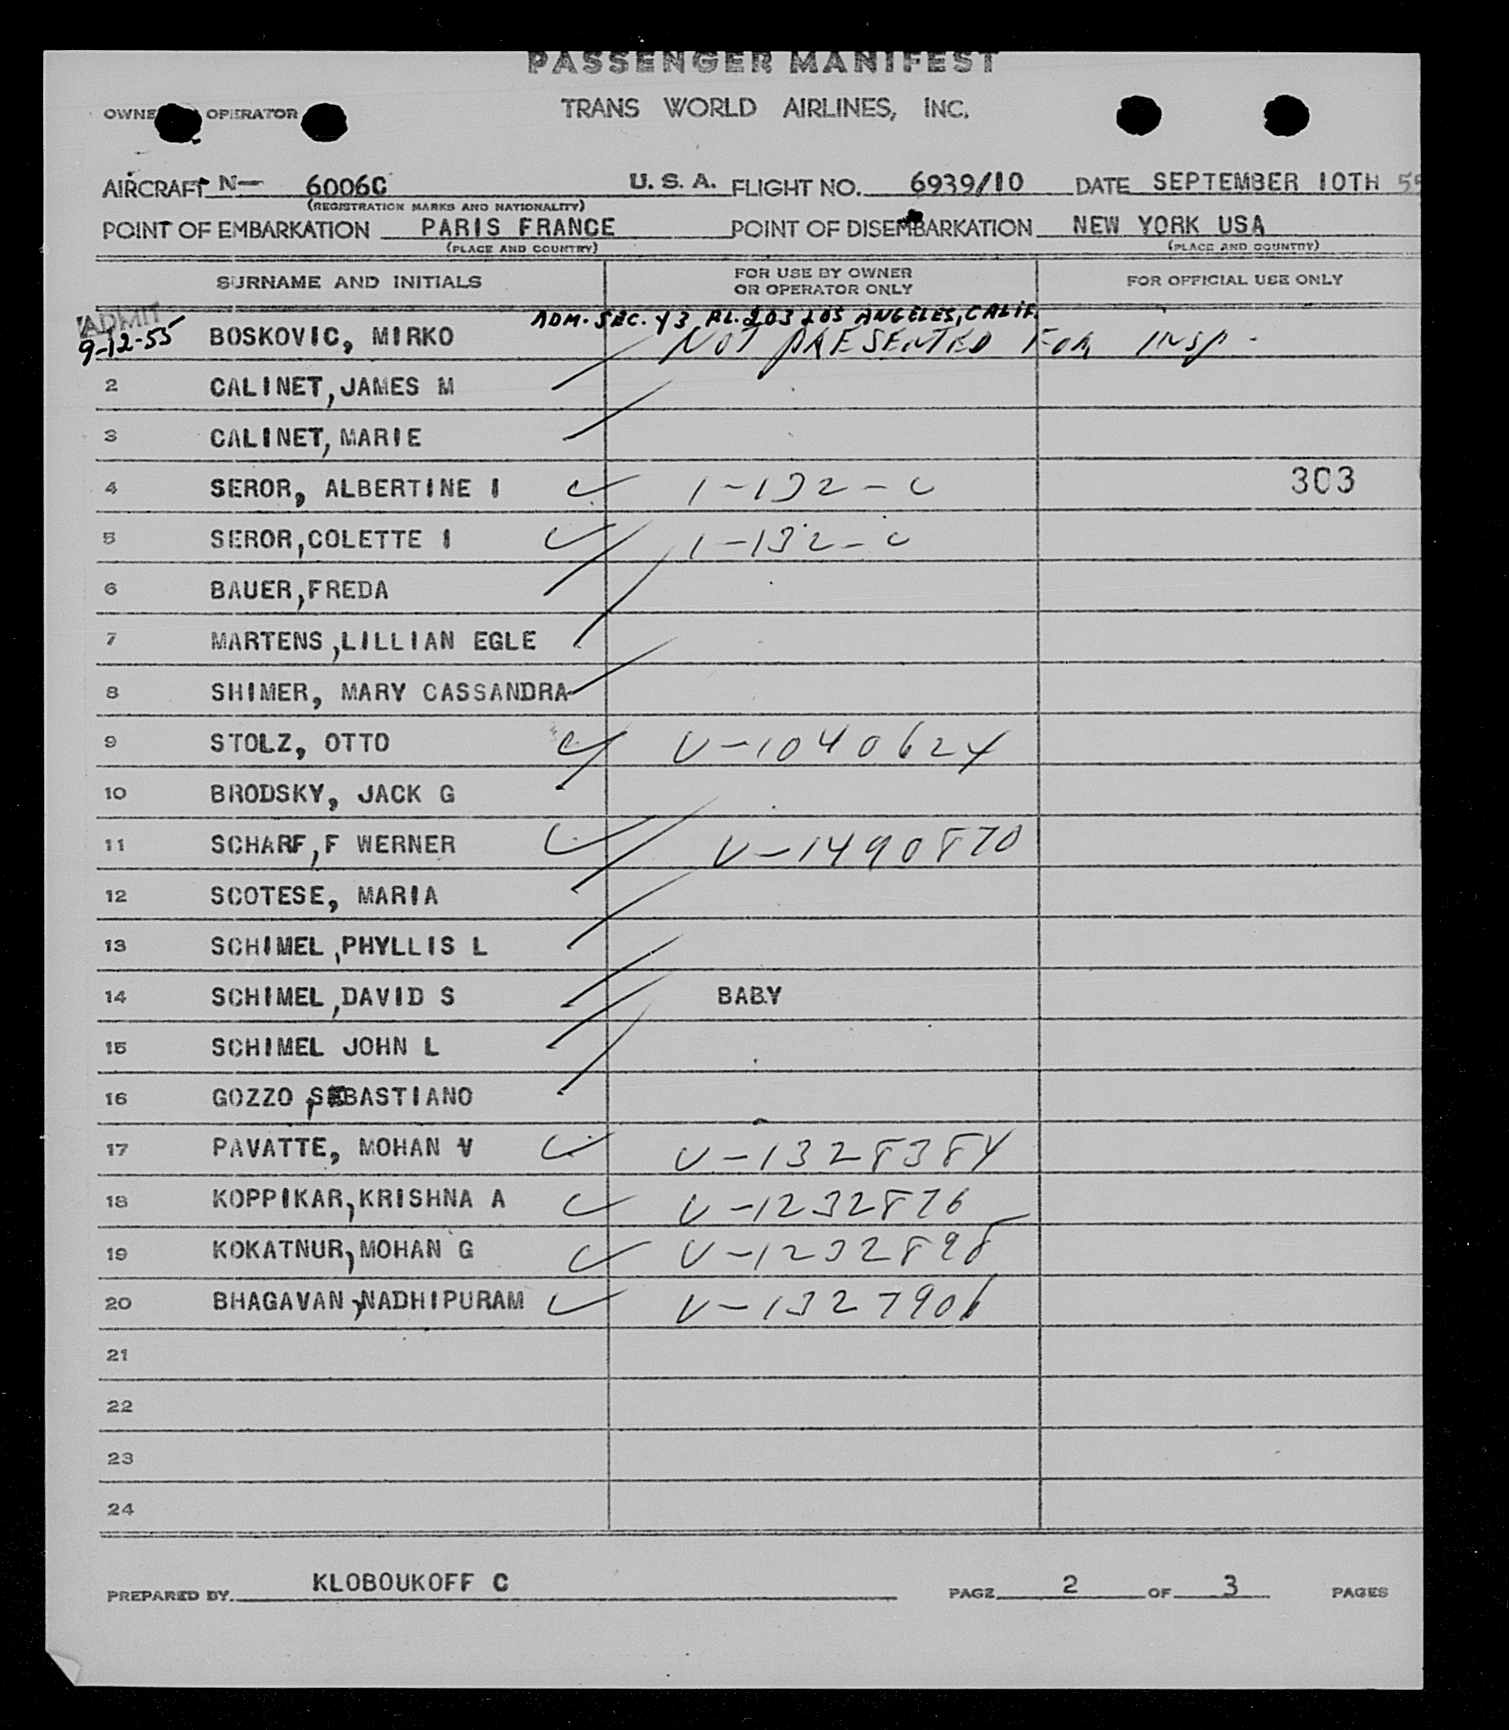 PASSENGER MANIFEST
TRANS WORLD AIRLINES, INC.
OPERATOR
AIRCRAFT N— 6006C U. S. A. FLIGHT NO. 6939/10 DATE SEPTEMBER 10TH 55
(REGISTRATION MARKS AND NATIONALITY)
POINT OF EMBARKATION PARIS FRANCE POINT OF DISEMBARKATION NEW YORK USA
(PLACE AND COUNTRY) (PLACE AND COUNTRY)
SURNAME AND INITIALS FOR USE BY OWNER OR OPERATOR ONLY FOR OFFICIAL USE ONLY
ADMIT ADM. SEC. 43 RL. 203 LOS ANGELES, CALIF.
9-12-55 BOSKOVIC, MIRKO NOT PRESENTED FOR INSP.
2 CALINET,JAMES M
3 CALINET,MARIE
4 SEROR, ALBERTINE I 1-132-C 303
5 SEROR,COLETTE I 1-132-C
6 BAUER,FREDA
7 MARTENS,LILLIAN EGLE
8 SHIMER, MARY CASSANDRA
9 STOLZ, OTTO V-1040624
10 BRODSKY, JACK G
11 SCHARF,F WERNER V-1490870
12 SCOTESE, MARIA
13 SCHIMEL,PHYLLIS L
14 SCHIMEL,DAVID S BABY
15 SCHIMEL JOHN L
16 GOZZO,SEBASTIANO
17 PAVATTE, MOHAN V V-1328384
18 KOPPIKAR,KRISHNA A V-1232876
19 KOKATNUR,MOHAN G V-1232898
20 BHAGAVAN,NADHIPURAM V-1327906
21
22
23
24
PREPARED BY. KLOBOUKOFF C PAGE 2 OF 3 PAGES